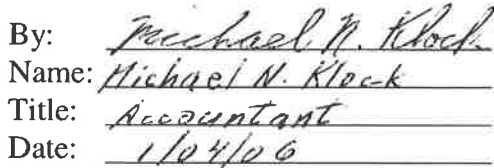 By: Michael N. Klock
Name: Michael N. Klock
Title: Accountant
Date: 1/04/06